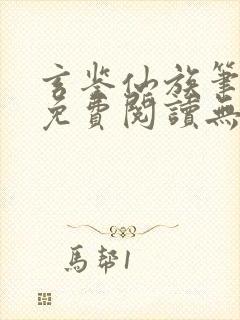 玄鉴仙族筆
免費閱讀無
馬幇1